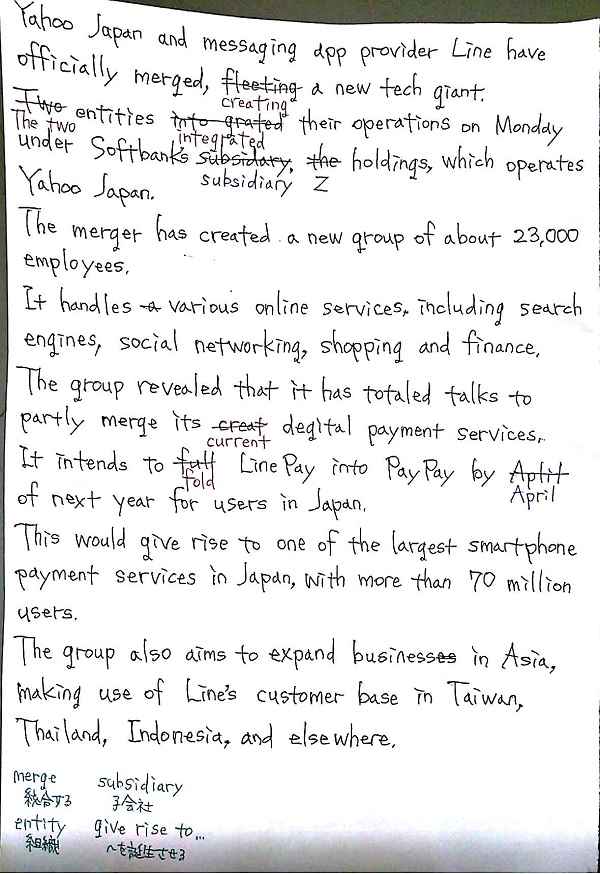 Yahoo Japan and messaging app provider Line have
officially merged, fleeting a new tech giant.
creating
Two entities into grated their operations on Monday
The two integrated
under Softbank's subsidary, the holdings, which operates
subsidiary Z
Yahoo Japan.
The merger has created a new group of about 23,000
employees.
It handles a various online services, including search
engines, social networking, shopping and finance.
The group revealed that it has totaled talks to
partly merge its creat degital payment services.
current
It intends to full Line Pay into PayPay by Aplit
fold April
of next year for users in Japan.
This would give rise to one of the largest smartphone
payment services in Japan, with more than 70 million
users.
The group also aims to expand businesses in Asia,
making use of Line's customer base in Taiwan,
Thailand, Indonesia, and elsewhere.
merge subsidiary
統合する 子会社
entity give rise to...
組織 〜を誕生させる